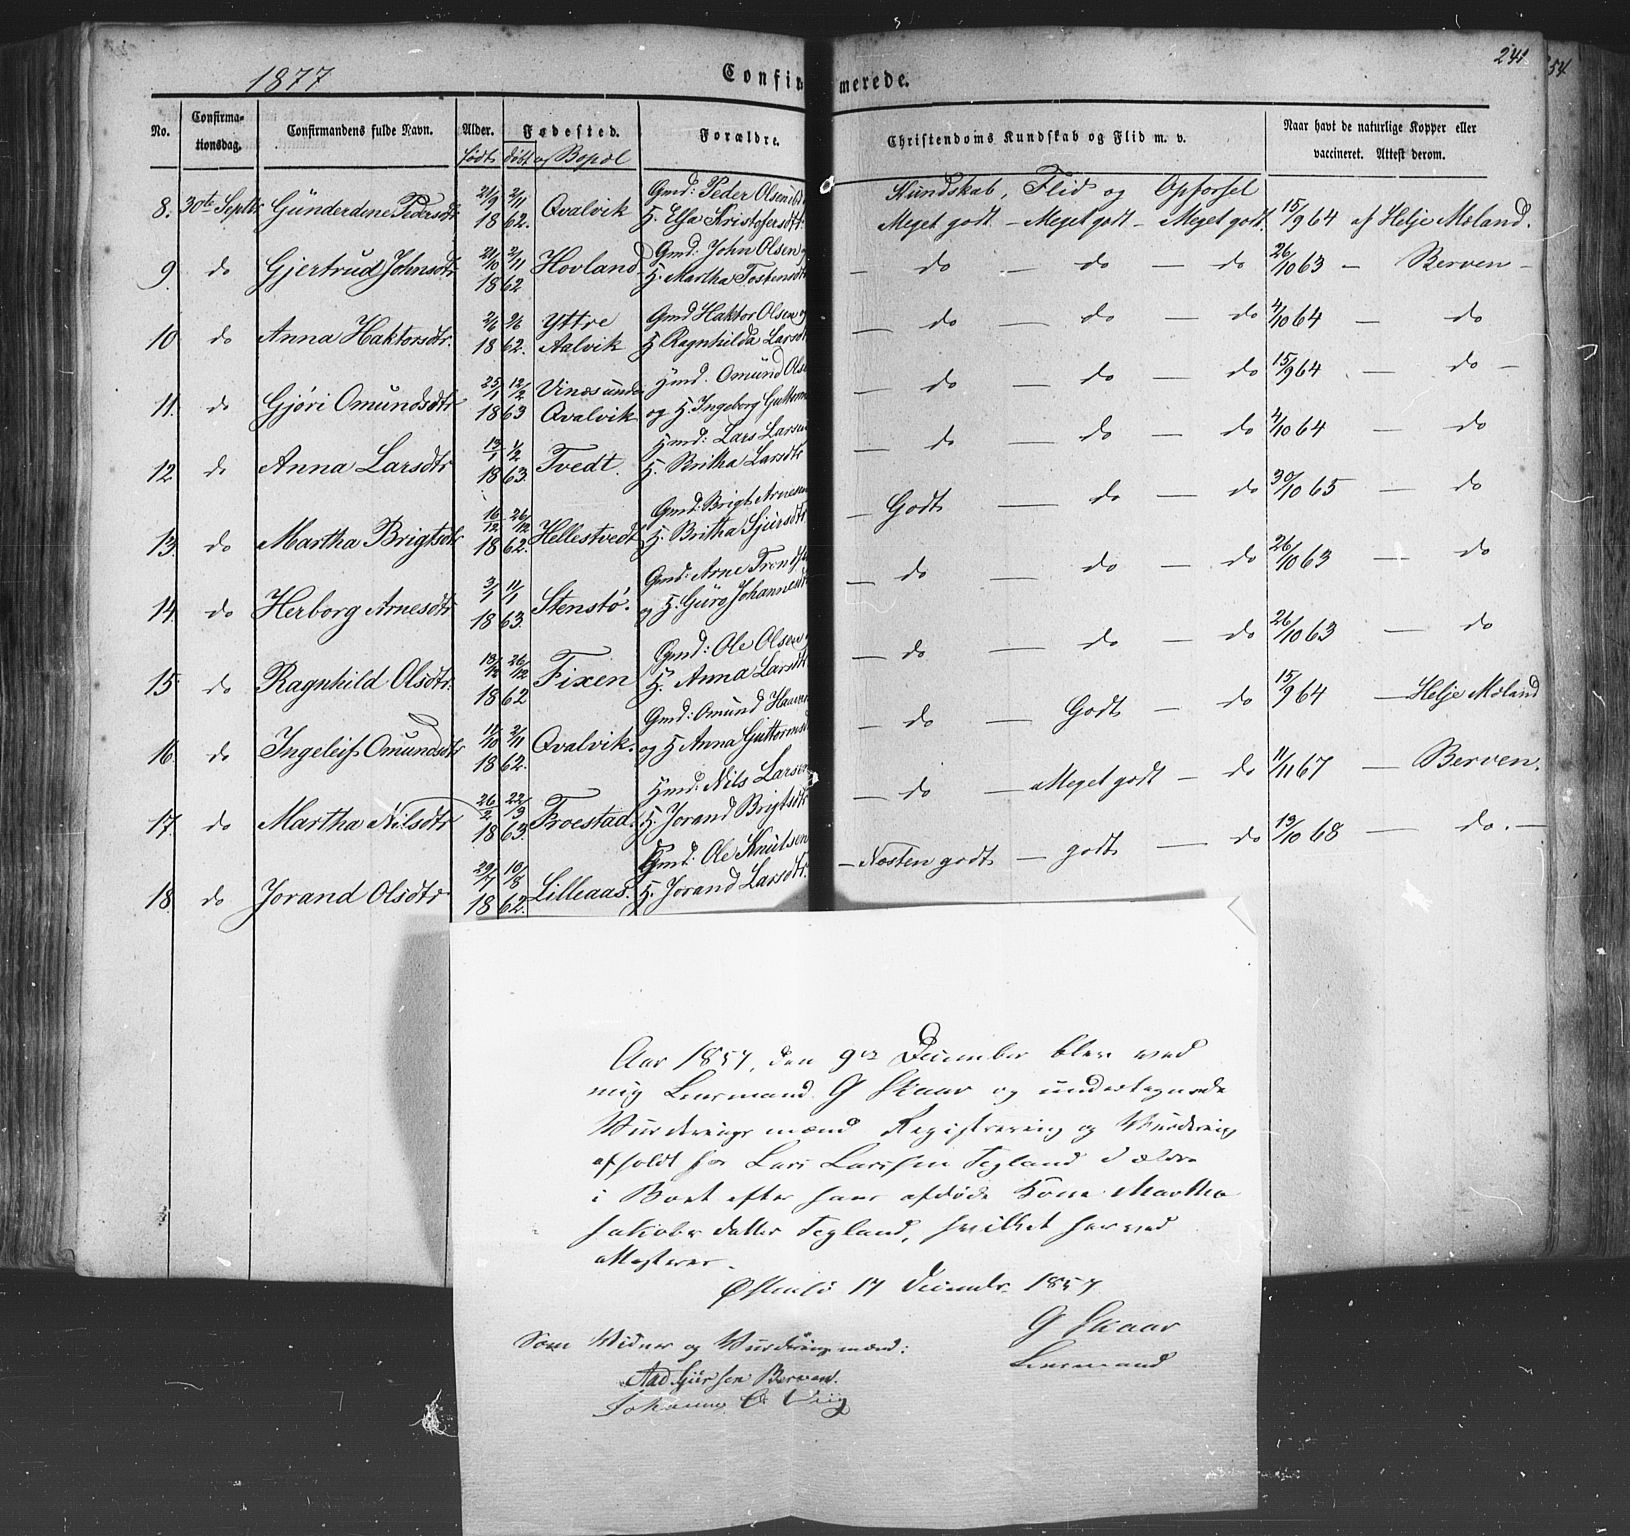 1877
Confirmerede.
241
54
No. Confirmationsdag. Confirmandens fulde Navn. Alder. Fødested. Forældre. Christendoms Kundskab og Flid m. v. Naar havt de naturlige Kopper eller vaccineret. Attest derom.
født døbt og Bopæl
Kundskab, Flid og Opførsel
8. 30te Septbr Gunderdene Pedersdtr 21/9 2/11 1862. Qvalvik Gmd: Peder Olsen H. Elsa Kristofersdtr. Meget godt. – Meget godt – Meget godt. 15/9 64 af Helje Moland.
9. do Gjertrud Johnsdtr 21/10 2/11 1862 Hovland Gmd: John Olsen H. Martha Tostensdtr – do – do – do 26/10 63 – Berven –
10 do Anna Haktorsdtr. 2/6 1862. Yttre Aalvik Gmd Haktor Olsen H Ragnhilda Larsdt – do – do – do 4/10 64 – do
11. do Gjøri Omundsdtr 25/1 12/2 1863 Vinæsunde Qvalvik Hmd. Omund Ols og H. Ingeborg Guttorm – do – do – do 15/9 64 – do –
12 do Anna Larsdtr 13/1 1/2 1863. Tvedt. Hmd: Lars Larsen H. Britha Larsdtr – do – do – do 4/10 64 – do
13. do Martha Brigtsdtr 16/12 26/12 1862. Hellestvedt Gmd: Brigt Arnesen H. Britha Sjursdtr – Godt – do – do 30/10 65 – do
14. do Herborg Arnesdtr 3/1 11/1 1863. Stenstø. Gmd: Arne Trond og H. Guro Johannesdt – do – do – do 26/10 63 – do
15. do Ragnhild Olsdtr. 13/12 26/12 1862 Fixen Gmd: Ole Olsen H. Anna Larsdt – do – do – do 26/10 63 – do
16. do Ingeleif Omundsdtr 11/10 2/11 1862. Qvalvik. Gmd: Omund og H Anna Guttormsd – do – Godt – do 15/9 64 – Helje Moland
17. do Martha Nilsdtr 26/2 22/3 1863. Froestad. Hmd: Nils Larsen H. Jorand Brigtsdtr – do – Meget godt – do 11/11 67 – Berven.
18. do Jorand Olsdtr 29/7 10/8 1862. Lilleaas. Gmd: Ole Knutsen H. Jorand Larsdtr. – Næsten godt – godt – do 13/10 68 – do. –
Aar 1857, den 9de December blev ved
mig Lensmand G Skaar og undertegnede
Vurderings mænd Registrering og Vurdering
afholdt hos Lars Larssen Tegland d ældre
i Boet efter hans afdøde Kone Martha
Jakobsdatter Tegland, hvilket herved
attesteres.
Østensø 17 Decembr. 1857
G Skaar
Lensmand
Som Vidner og Vurderingsmænd:
Berven.
Johannes O. Viig